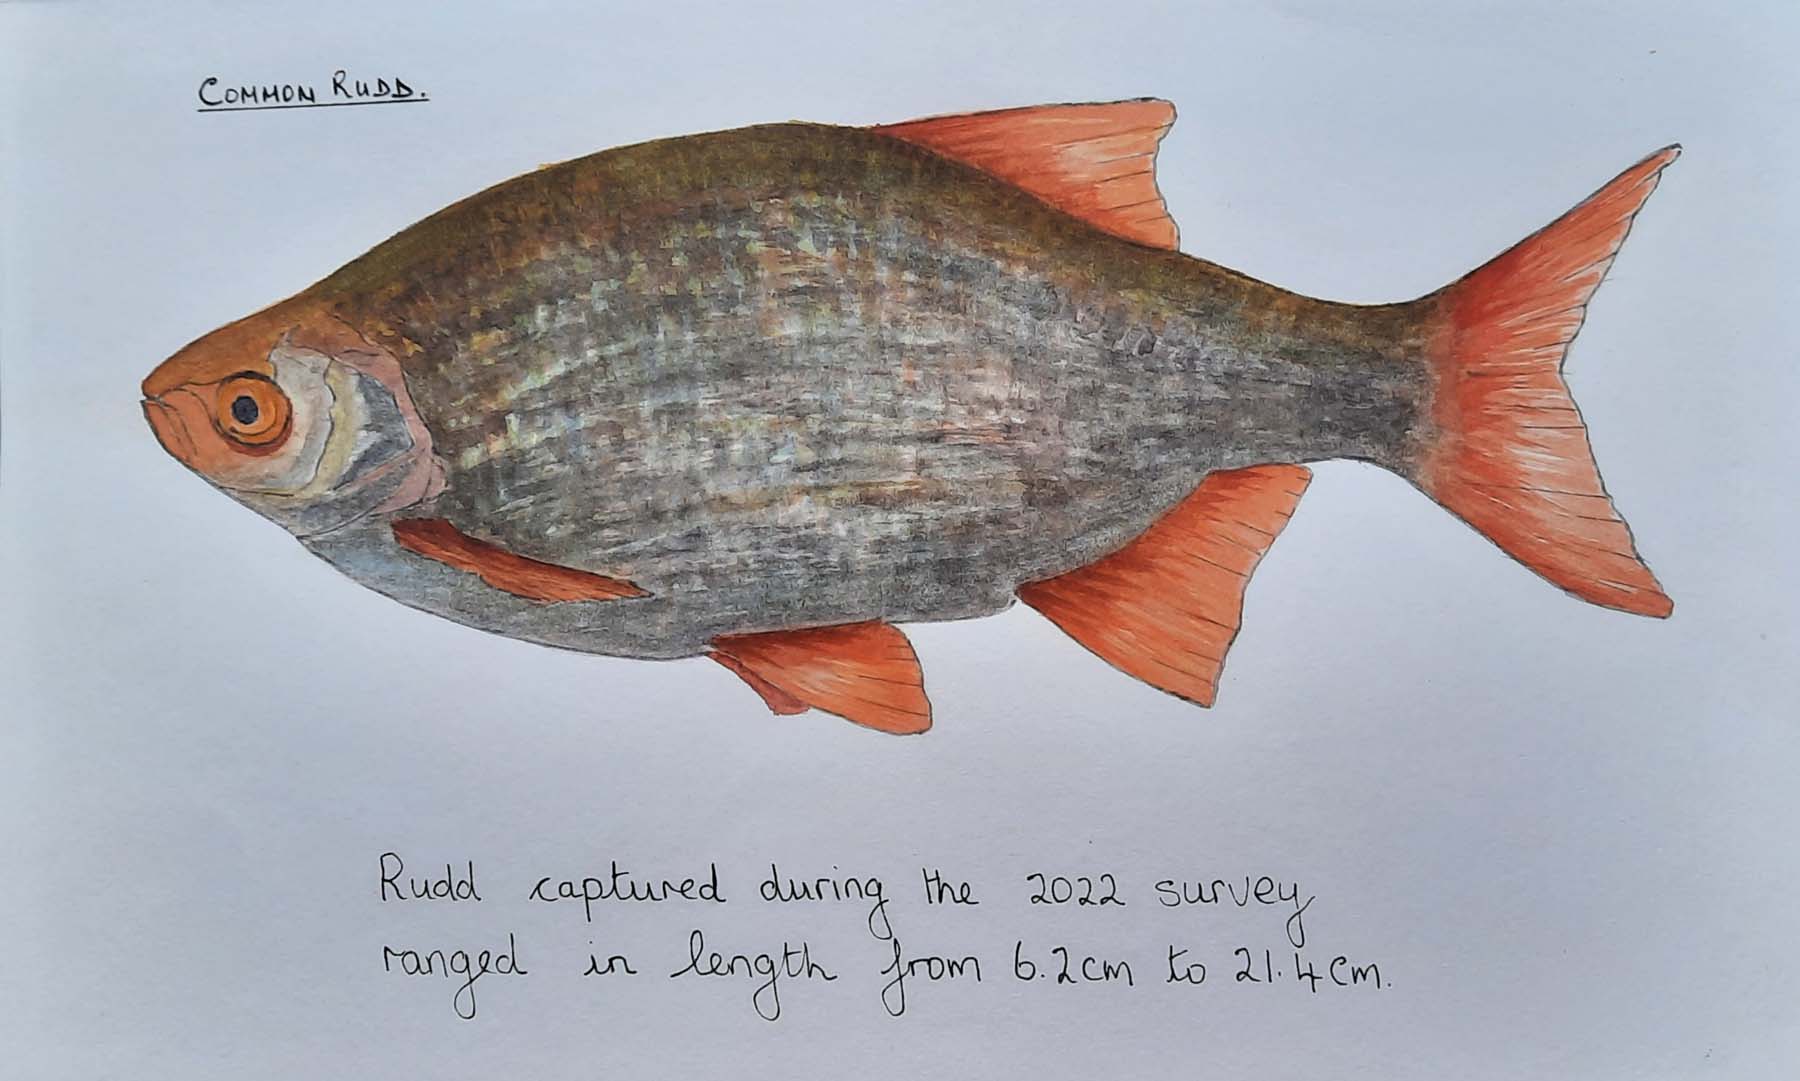 COMMON RUDD.
Rudd captured during the 2022 survey
ranged in length from 6.2cm to 21.4cm.